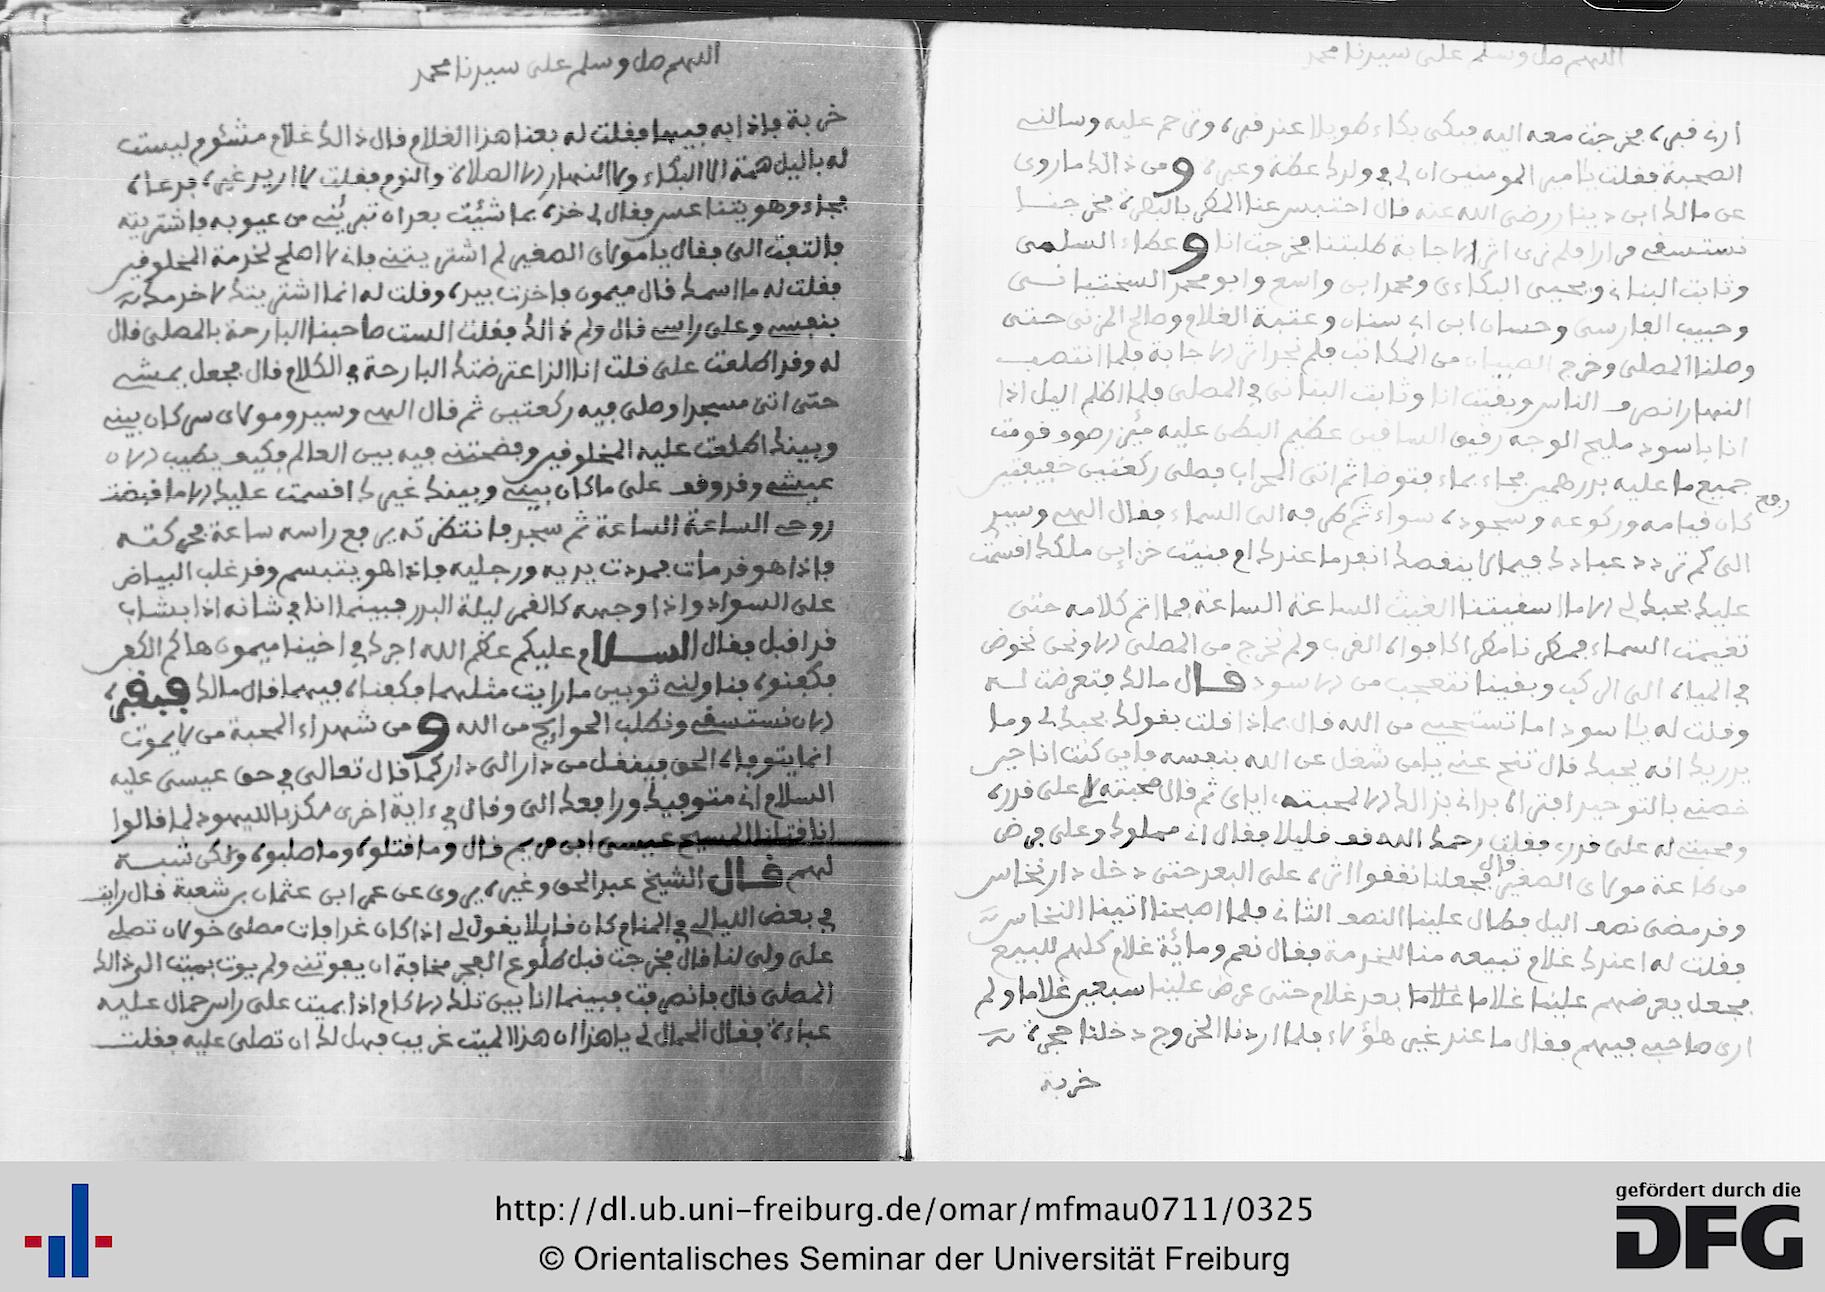 اللهم صل وسلم على سيدنا محمد
أرنى قبره فخرجت معه اليه فبكى بكاء طويلا عند قبره وترحم عليه وسالنى
الصحبة فقلت يا امير المومنين ان لى فى ولدك عظة وعبرة ومن ذالك ما روى
عن مالك ابن دينار رضى الله عنه قال احتبس عنا المطر بالبصرة فخرجنا
نستسقى مرارا فلم نرى اثر الاجابة طلبتنا فخرجت انا وعطاء السلمى
وثابت البنانى ويحيى البكاءى ومحمد ابن واسع وابو محمد السختيانى
وحبيب الفارسى وحسان ابن ابى سنان وعتبة الغلام وصالح المزنى حتى
وصلنا المصلى وخرج الصبيان من المكاتب فلم نجد اثر الاجابة فلما انتصب
النهار انصرف الناس وبقيت انا وثابت البنانى فى المصلى فلما اظلم اليل اذا
انا باسود مليح الوجه رفيق الساقين عظيم البطن عليه مئزر صوف قومت
جميع ما عليه بدرهمين فجاء بماء فتوضا ثم اتى المحراب فصلى ركعتين خفيفتين
كان قيامه وركوعه وسجوده سواء ثم رفع طرفه الى السماء فقال الهى وسيدى
الى كم تردد عبادك فيما لا ينقصك انفد ما عندك ام فنيت خزاين ملكك اقسمت
عليك بحبك لى الا ما اسقيتنا الغيث الساعة الساعة فما اتم كلامه حتى
تغيمت السماء فمطرنا مطرا كافواه القرب ولم نخرج من المصلى الا ونحن نخوض
فى المياه الى الركب وبقينا نتعجب من الاسود قال مالك فتعرضت له
وقلت له يا اسود اما تستحيى من الله قال بماذا قلت بقولك بحبك لى وما
يدريك انه يحبك قال تنح عنى يا من شغل عن الله بنفسه فاين كنت انا حين
خصنى بالتوحيد افتراه بدانى بذالك الا لمحبته اياى ثم قال محبته لى على قدره
ومحبتى له على قدرى فقلت رحمك الله قف قليلا فقال انى مملوك وعلى فرض
من طاعة مولاى الصغير قال فجعلنا نقفوا اثره على البعد حتى دخل دار نخاس
وقد مضى نصف اليل فطال علينا النصف الثانى فلما اصبحنا اتينا النخاس
فقلت له اعندك غلام تبيعه منا للخدمة فقال نعم ومائة غلام كلهم للبيع
فجعل يعرضهم علينا غلاما غلاما بعد غلام حتى عرض علينا سبعين غلاما ولم
ارى صاحبى فيهم فقال ما عند غير هؤلاء فلما اردنا الخروج دخلنا حجرة
خربة
اللهم صل وسلم على سيدنا محمد
خربة فاذا به فيها فقلت له بعنا هذا الغلام قال ذالك غلام مشئوم ليست
له باليل همة الا البكاء ولا النهار الا الصلاة والنوم فقلت لا اريد غيره فدعاه
فجاء وهو يتناعس فقال لى خذه بما شئت بعد ان تبرئنى من عيوبه فاشتريته
فالتفت الى فقال يا مولاى الصغير لم اشتريتنى فانى لا اصلح لخدمة المخلوقين
فقلت له ما اسمك قال ميمون فاخذت بيده وقلت له انما اشتريتك لاخدمك
بنفسى وعلى راسى قال ولم ذالك فقلت الست صاحبنا البارحة بالمصلى قال
له وقد اطلعت على قلت انا الذا عترضتك البارحة فى الكلام قال فجعل يمشى
حتى اتى مسجدا وصلى فيه ركعتين ثم قال الهى وسيد ومولاى سر كان بينى
وبينك اطلعت عليه المخلوقين وفضحتنى فيه بين العالم فكيف يطيب الان
عيشى وقد وقف على ما كان بينى وبينك غيرك اقسمت عليك الا ما قبضت
روحى الساعة الساعة ثم سجد فانتظرته يرفع راسه ساعة فحركته
فاذا هو قد مات فمددت يديه ورجليه فاذا هو يتبسم وقد غلب البياض
على السواد واذا وجهه كالقمر ليلة البدر فبينما انا فى شانه اذا بشاب
قد اقبل فقال السلام عليكم عظم الله اجرك فى اخينا ميمون هاكم الكفن
فكفنوه فناولنى ثوبين ما رايت مثلهما فكفناه فيهما قال مالك فبقبره
الان نستسقى ونطلب الحوايج من الله ومن شهداء المحبة من لا يموت
انما يتوفاه الحق فينقل من دار الى دار كما قال تعالى فى حق عيسى عليه
السلام انى متوفيك ورافعك الى وقال فى ءاية اخرى مكذبا لليهود لما قالوا
انا قتلنا المسيح عيسى ابن مريم قال وما قتلوه وما صلبوه ولاكن شبه
لهم قال الشيخ عبد الحق وغيره يروى عن عمر ابن عثمان بر شعبة قال رايت
فى بعض الليالى فى المنام كان قايلا يقول لى اذا كان غدا فات مصلى خولان تصلى
على ولى لنا قال فخرجت قبل طلوع الفجر مخافة ان يفوتنى ولم يوت بميت الى ذالك
المصلى قال فانصرفت فبينما انا بين تلك الاكام اذا بميت على راس حمال عليه
عباءة فقال الحمال لى يا هذا ان هذا الميت غريب فهل لك ان تصلى عليه فقلت
http://dl.ub.uni-freiburg.de/omar/mfmau0711/0325
© Orientalisches Seminar der Universität Freiburg
gefördert durch die
DFG